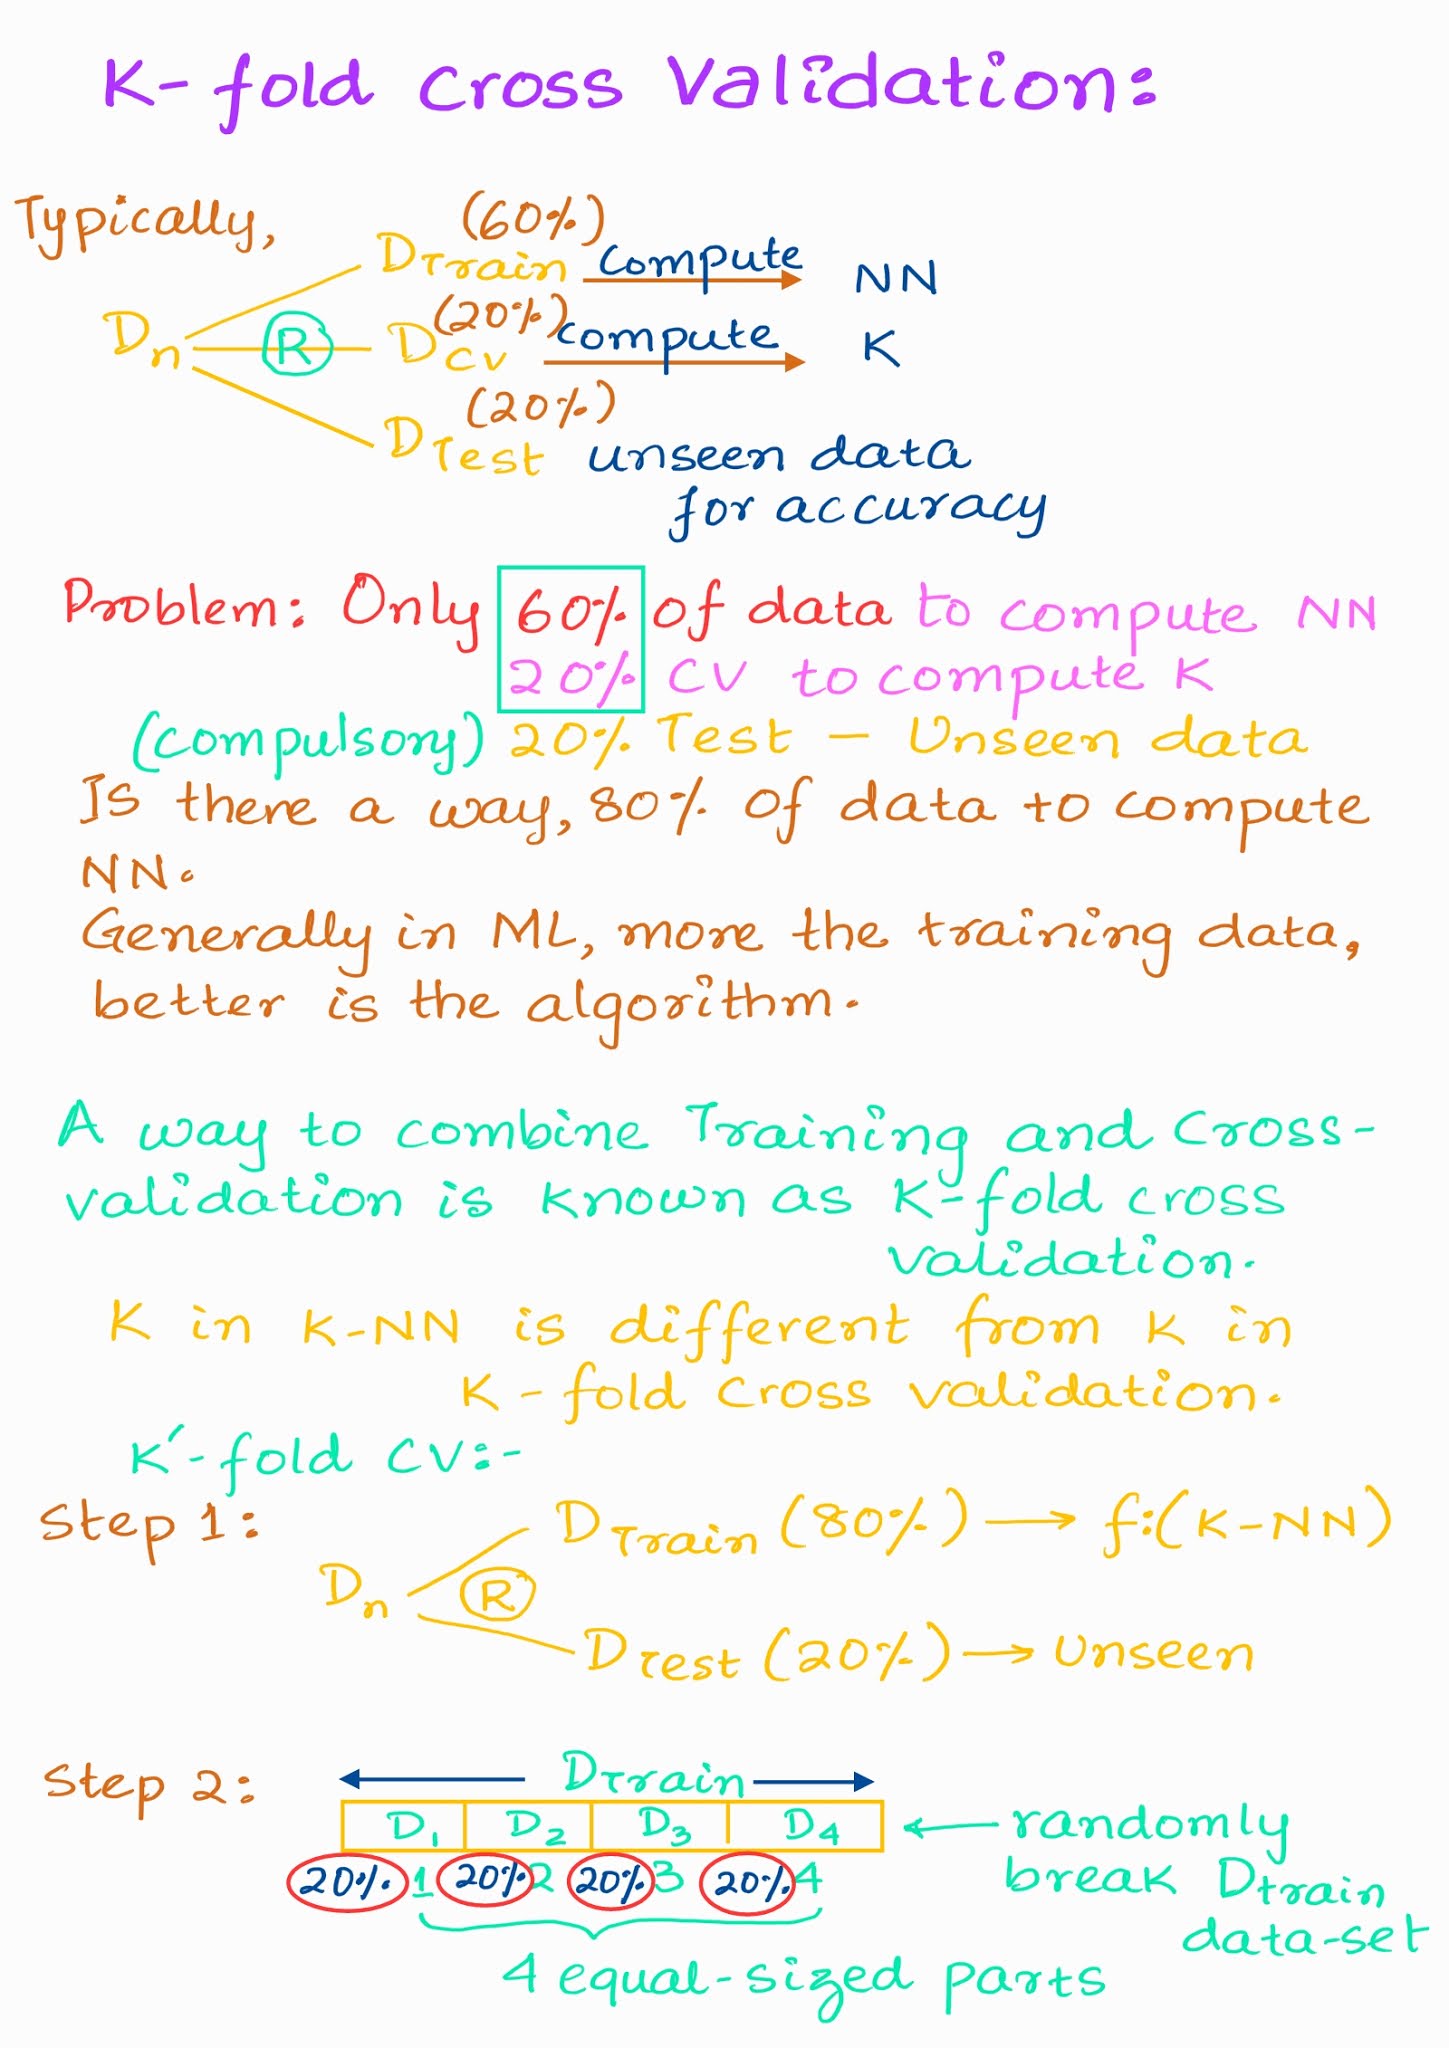 K-fold Cross Validation:
Typically,
(60%)
DTrain compute NN
(20%)
Dn R DCV compute K
(20%)
DTest unseen data
for accuracy
Problem: Only 60% of data to compute NN
20% CV to compute K
(compulsory) 20% Test - Unseen data
Is there a way, 80% of data to compute
NN.
Generally in ML, more the training data,
better is the algorithm.
A way to combine Training and Cross-
validation is known as K-fold cross
validation.
K in K-NN is different from K in
K-fold Cross validation.
K'-fold CV:-
Step 1:
DTrain (80%) → f:(K-NN)
Dn R
DTest (20%) → Unseen
Step 2: DTrain
D1 D2 D3 D4 ← randomly
20% 1 20% 2 20% 3 20% 4 break Dtrain
data-set
4 equal-sized parts